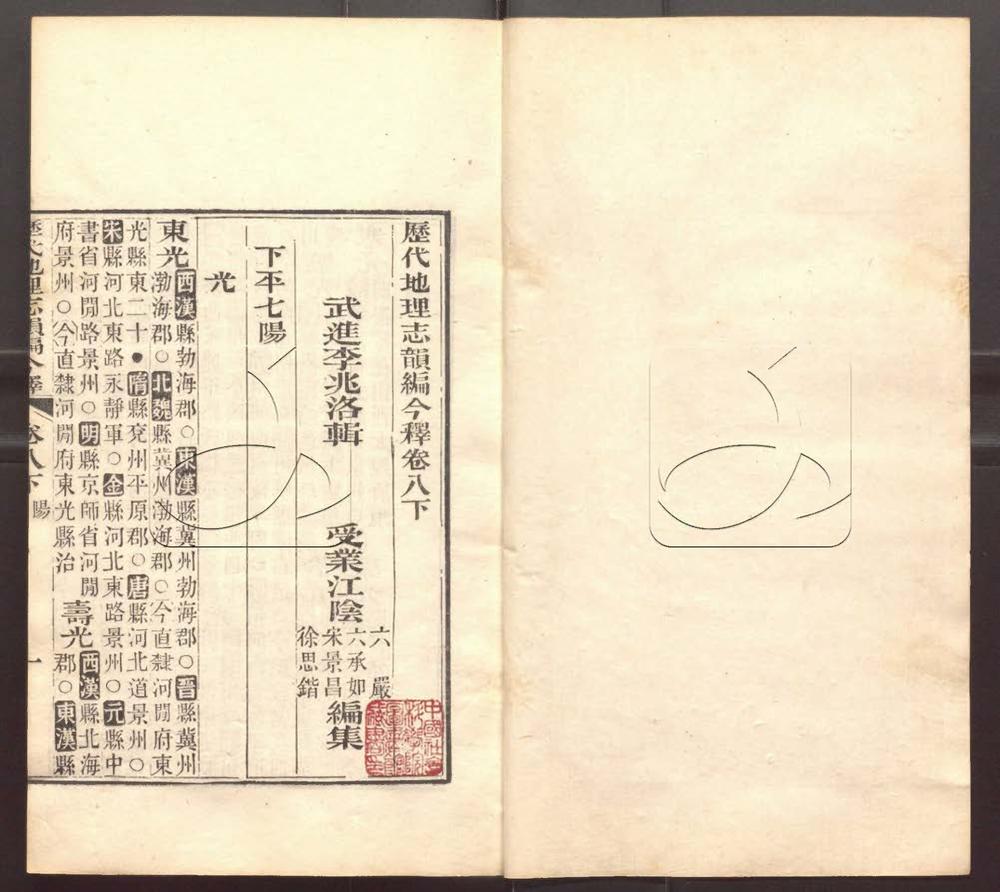 歷代地理志韻編今釋卷八下
武進李兆洛輯 受業江陰
六 嚴
六承如
宋景昌
徐思鍇
編集
下平七陽
光
東光
西漢縣勃海郡○東漢縣冀州勃海郡○晉縣冀州
渤海郡○北魏縣冀州渤海郡○今直隸河間府東
光縣東二十●隋縣兗州平原郡○唐縣河北道景州○
宋縣河北東路永靜軍○金縣河北東路景州○元縣中
書省河間路景州○明縣京師省河間
府景州○今直隸河間府東光縣治
壽光
西漢縣北海
郡○東漢縣
歷代地理志韻編今釋 卷八下 陽 一